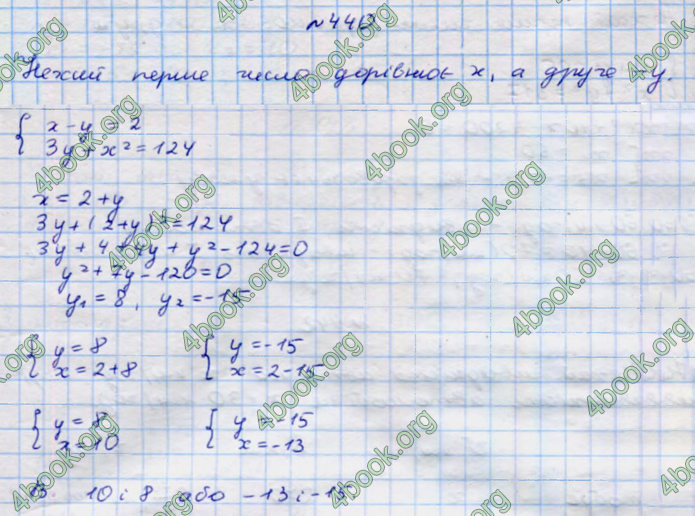 № 442
Нехай перше число дорівнює x, а друге – y.
{ x - y = 2
3y + x² = 124
x = 2 + y
3y + (2+y)² = 124
3y + 4 + 4y + y² - 124 = 0
y² + 7y - 120 = 0
y₁ = 8, y₂ = -15
{ y = 8 { y = -15
x = 2+8 x = 2-15
{ y = 8 { y = -15
x = 10 x = -13
В. 10 і 8 або -13 і -15
4book.org